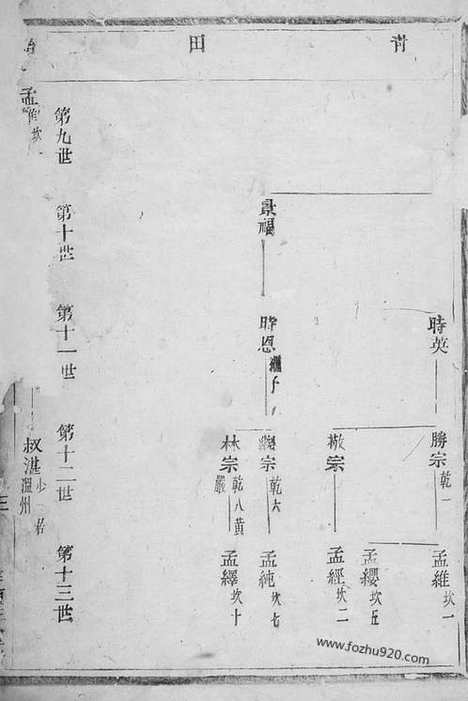 青田
時英
勝宗 乾一
孟維 坎一
孟纓 坎五
宗
孟經 坎二
景福
時恩
宗 乾六
孟純 坎七
林宗 乾八黃巖
孟繹 坎十
第九世
第十世
第十一世
第十二世
第十三世
孟 坎一
叔湛 温州
www.fozhu920.com